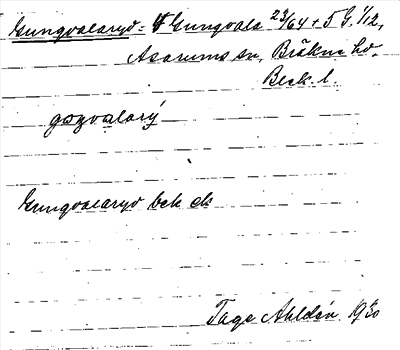 Gungvalaryd = Gungvala 23/64 + 5 G. 1/12,
Asarums sn, Bräkne hd.
Blek. l.
gɷŋvalarý
Gungvalaryd bek ek
Tage Ahldén 1930